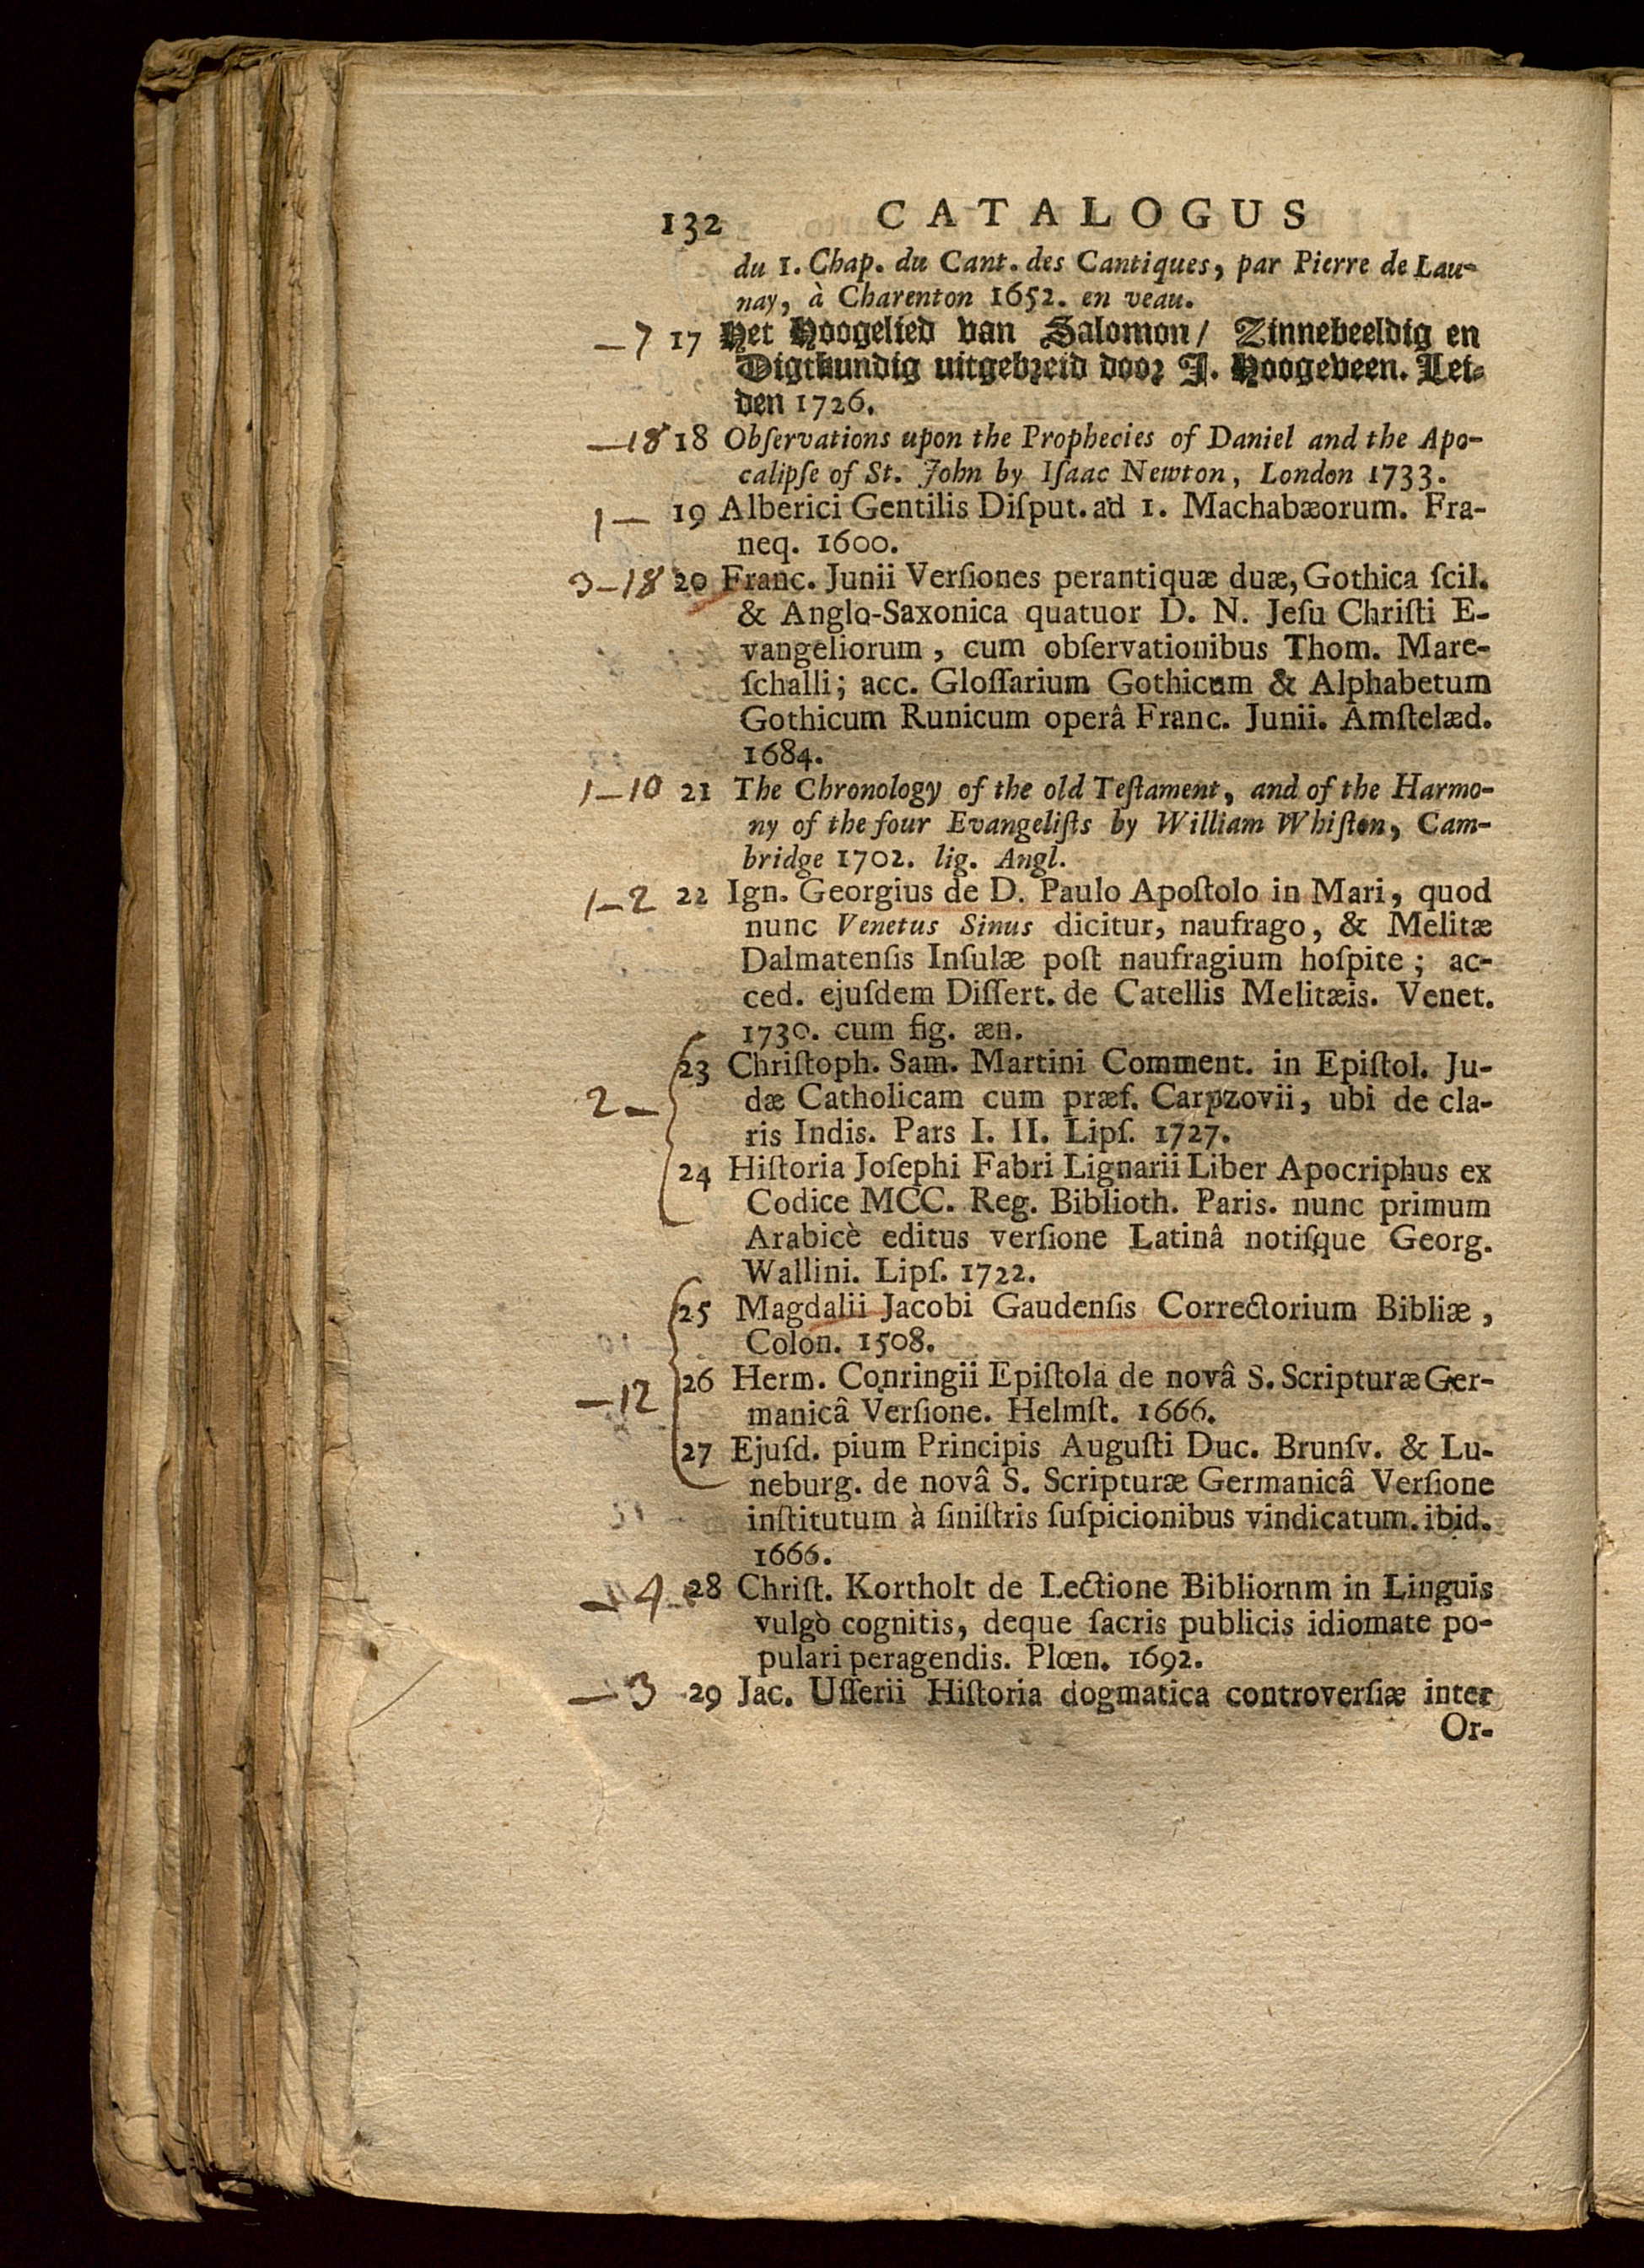 132 CATALOGUS
du 1. Chap. du Cant. des Cantiques, par Pierre de Lau-
nay, à Charenton 1652. en veau.
—7 17 Het Hoogelied van Salomon/ Zinnebeeldig en
Digtkundig uitgebreid door J. Hoogeveen. Lei-
den 1726.
—18 18 Obſervations upon the Prophecies of Daniel and the Apo-
calipſe of St. John by Iſaac Newton, London 1733.
1— 19 Alberici Gentilis Diſput. ad 1. Machabæorum. Fra-
neq. 1600.
3—18 20 Franc. Junii Verſiones perantiquæ duæ, Gothica ſcil.
& Anglo-Saxonica quatuor D. N. Jeſu Chriſti E-
vangeliorum, cum obſervationibus Thom. Mare-
ſchalli; acc. Gloſſarium Gothicum & Alphabetum
Gothicum Runicum operâ Franc. Junii. Amſtelæd.
1684.
1—10 21 The Chronology of the old Teſtament, and of the Harmo-
ny of the four Evangeliſts by William Whiſton, Cam-
bridge 1702. lig. Angl.
1—2 22 Ign. Georgius de D. Paulo Apoſtolo in Mari, quod
nunc Venetus Sinus dicitur, naufrago, & Melitæ
Dalmatenſis Inſulæ poſt naufragium hoſpite; ac-
ced. ejuſdem Diſſert. de Catellis Melitæis. Venet.
1730. cum fig. æn.
23 Chriſtoph. Sam. Martini Comment. in Epiſtol. Ju-
2— dæ Catholicam cum præf. Carpzovii, ubi de cla-
ris Indis. Pars I. II. Lipſ. 1727.
24 Hiſtoria Joſephi Fabri Lignarii Liber Apocriphus ex
Codice MCC. Reg. Biblioth. Paris. nunc primum
Arabicè editus verſione Latinâ notiſque Georg.
Wallini. Lipſ. 1722.
25 Magdalii Jacobi Gaudenſis Correctorium Bibliæ,
Colon. 1508.
26 Herm. Conringii Epiſtola de novâ S. Scripturæ Ger-
—12 manicâ Verſione. Helmſt. 1666.
27 Ejuſd. pium Principis Auguſti Duc. Brunſv. & Lu-
neburg. de novâ S. Scripturæ Germanicâ Verſione
inſtitutum à ſiniſtris ſuſpicionibus vindicatum. ibid.
1666.
—4 28 Chriſt. Kortholt de Lectione Bibliornm in Linguis
vulgò cognitis, deque ſacris publicis idiomate po-
pulari peragendis. Plœn. 1692.
—3 29 Jac. Uſſerii Hiſtoria dogmatica controverſiæ inter
Or-